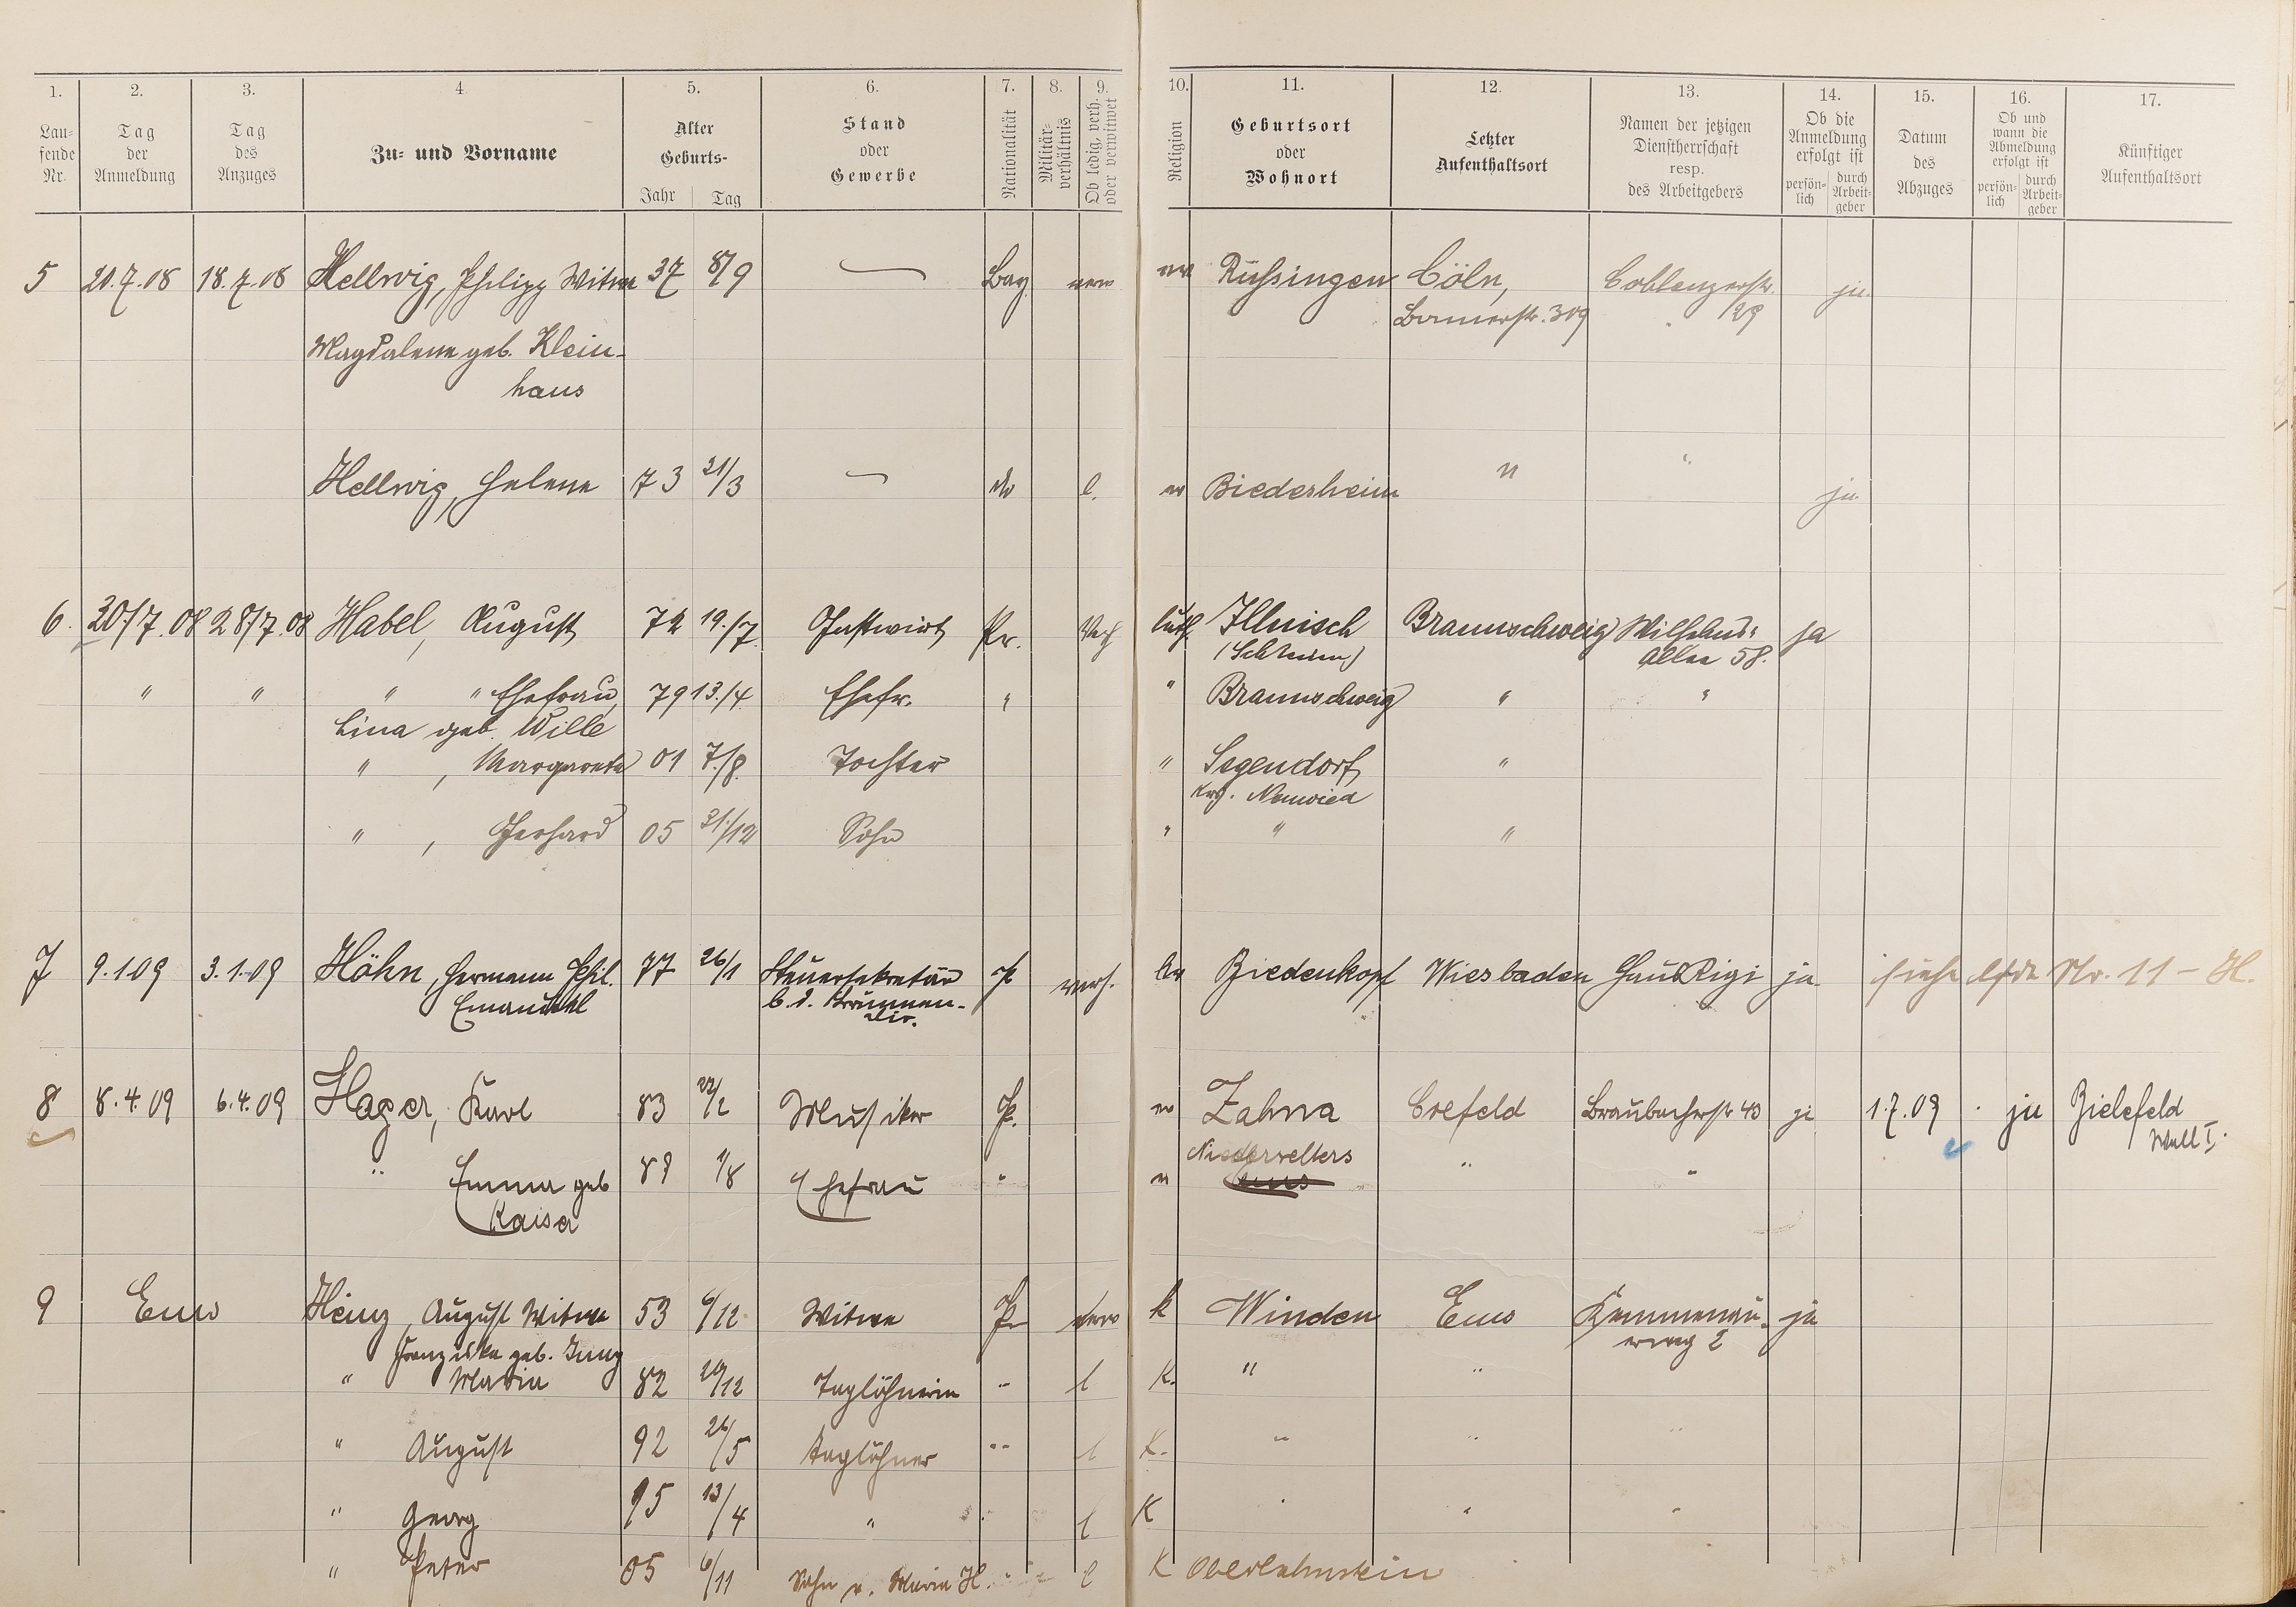 1. 2. 3. 4 5. 6. 7. 8. 9. 10. 11. 12. 13. 14. 15. 16. 17.
Laufende Nr.
Tag der Anmeldung
Tag des Anzuges
Zu- und Vorname
Alter Geburts-
Jahr Tag
Stand oder Gewerbe
Nationalität
Militär-verhältnis
Ob ledig, verh. oder verwitwet
Religion
Geburtsort oder Wohnort
Letzter Aufenthaltsort
Namen der jetzigen Dienstherrschaft resp. des Arbeitgebers
Ob die Anmeldung erfolgt ist
persön-lich durch Arbeit-geber
Datum des Abzuges
Ob und wann die Abmeldung erfolgt ist
persön-lich durch Arbeit-geber
Künftiger Aufenthaltsort
5 18.7.08 Hellwig, Philipp Witwe 37 8/9 Bay. Rüssingen Cöln, Coblenzerstr. ja.
Bonnerstr. 309 29
Magdalene geb. Klein-
haus
Hellwig, Helene 73 21/3 l. ev Biederheim " " ja
6. 30/7.08 28/7.08 Habel, August 72 19./7. Gastwirt Pr. Verh luth. Braunschweig Wilhelms- ja
Allee 58.
" " " " Ehefrau, 79 13./4 Ehefr. " " Braunschweig " "
Lina geb. Wille
" , Margarete 01 7./8. Tochter " Segendorf "
Krs. Neuwied
" , Gerhard 05 /12 Sohn " " "
7 9.1.09 3.1.09 Höhn, Hermann Phil. 77 26/1 Steuersekretär P verh. ev Biedenkopf Wiesbaden Haus Rigi ja siehe lfde Nr. 11 - H.
Emanuel b. d. Brunnen-
8 8.4.09 6.4.09 Hager, Karl 83 22/2 Musiker P. ev Zahna Crefeld Braubacherstr 40 ja 1.7.09 ja Bielefeld
Wall I.
" Emma geb 1/8 Ehefrau " Niederselters " "
Kaiser
9 Ems Heinz, August Witwe 53 6/12 Witwe Pr verw k Winden Ems Kemmenau- ja
erweg 2
Franziska geb. Jung
" Maria 82 /12 Taglöhnerin " l K. " "
" August 92 26/5 Taglöhner " l K. " " "
" Georg 95 13/4 " " l K " " "
" Peter 05 6/11 Sohn v. Maria H. " l K Oberlahnstein